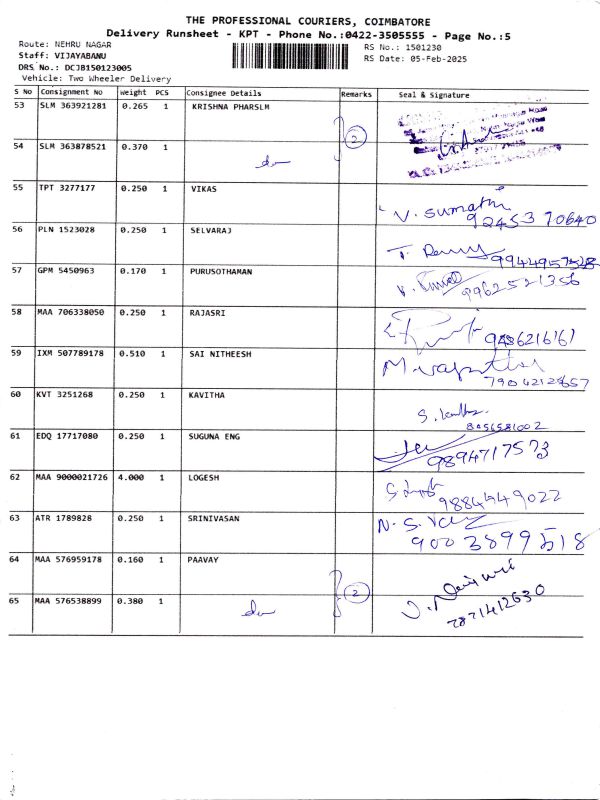 THE PROFESSIONAL COURIERS, COIMBATORE
Delivery Runsheet - KPT - Phone No.:0422-3505555 - Page No.:5
Route: NEHRU NAGAR
RS No.: 1501230
Staff: VIJAYABANU
RS Date: 05-Feb-2025
DRS No.: DCJB150123005
Vehicle: Two Wheeler Delivery
S No Consignment No Weight PCS Consignee Details Remarks Seal & Signature
53 SLM 363921281 0.265 1 KRISHNA PHARSLM
2
54 SLM 363878521 0.370 1
do
55 TPT 3277177 0.250 1 VIKAS
V. Sumathi
92453 70640
56 PLN 1523028 0.250 1 SELVARAJ
57 GPM 5450963 0.170 1 PURUSOTHAMAN
9962521356
58 MAA 706338050 0.250 1 RAJASRI
9486216161
59 IXM 507789178 0.510 1 SAI NITHEESH
60 KVT 3251268 0.250 1 KAVITHA
61 EDQ 17717080 0.250 1 SUGUNA ENG
9894717573
62 MAA 9000021726 4.000 1 LOGESH
9884949022
63 ATR 1789828 0.250 1 SRINIVASAN
9003899518
64 MAA 576959178 0.160 1 PAAVAY
2
65 MAA 576538899 0.380 1
do
7871412630